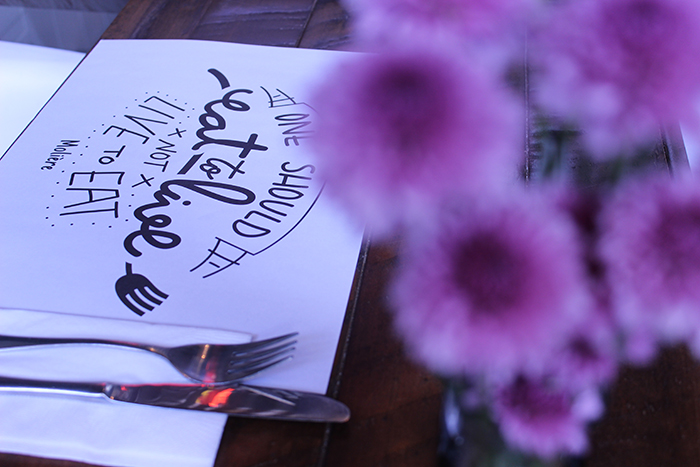 ONE SHOULD
eat to
live
× NOT ×
LIVE TO
EAT
Molière